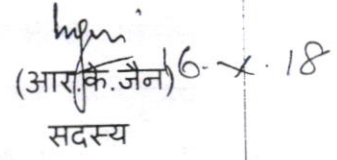 (आर.के.जैन) 16.x.18
सदस्य